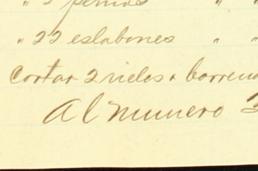 " 3 pernos " "
" 22 eslabones " "
Cortar 2 rieles &
Al numero 3